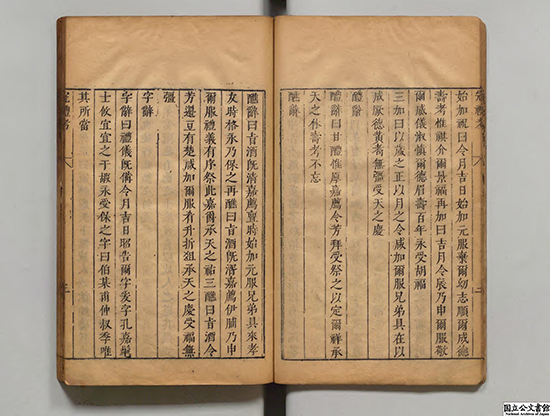 始加祝曰令月吉日始加元服棄爾幼志順爾成德
壽考惟祺介爾景福再加曰吉月令辰乃申爾服敬
爾威儀淑慎爾德眉壽百年永受胡福
三加曰以歲之正以月之令咸加爾服兄弟具在以
成厥德黃耇無疆受天之慶
醴辭
醴辭曰甘醴惟厚嘉薦令芳拜受祭之以定爾祥承
天之休壽考不忘
醮辭
醮辭曰旨酒旣清嘉薦亶時始加元服兄弟具來孝
友時格永乃保之再醮曰旨酒旣湑嘉薦伊脯乃申
爾服禮儀有序祭此嘉爵承天之祜三醮曰旨酒令
芳籩豆有楚咸加爾服肴升折俎承天之慶受福無
疆
字辭
字辭曰禮儀旣備令月吉日昭告爾字爰字孔嘉髦
士攸宜宜之于嘏永受保之字曰伯某甫仲叔季唯
其所當
冠禮考
三
国立公文書館
National Archives of Japan